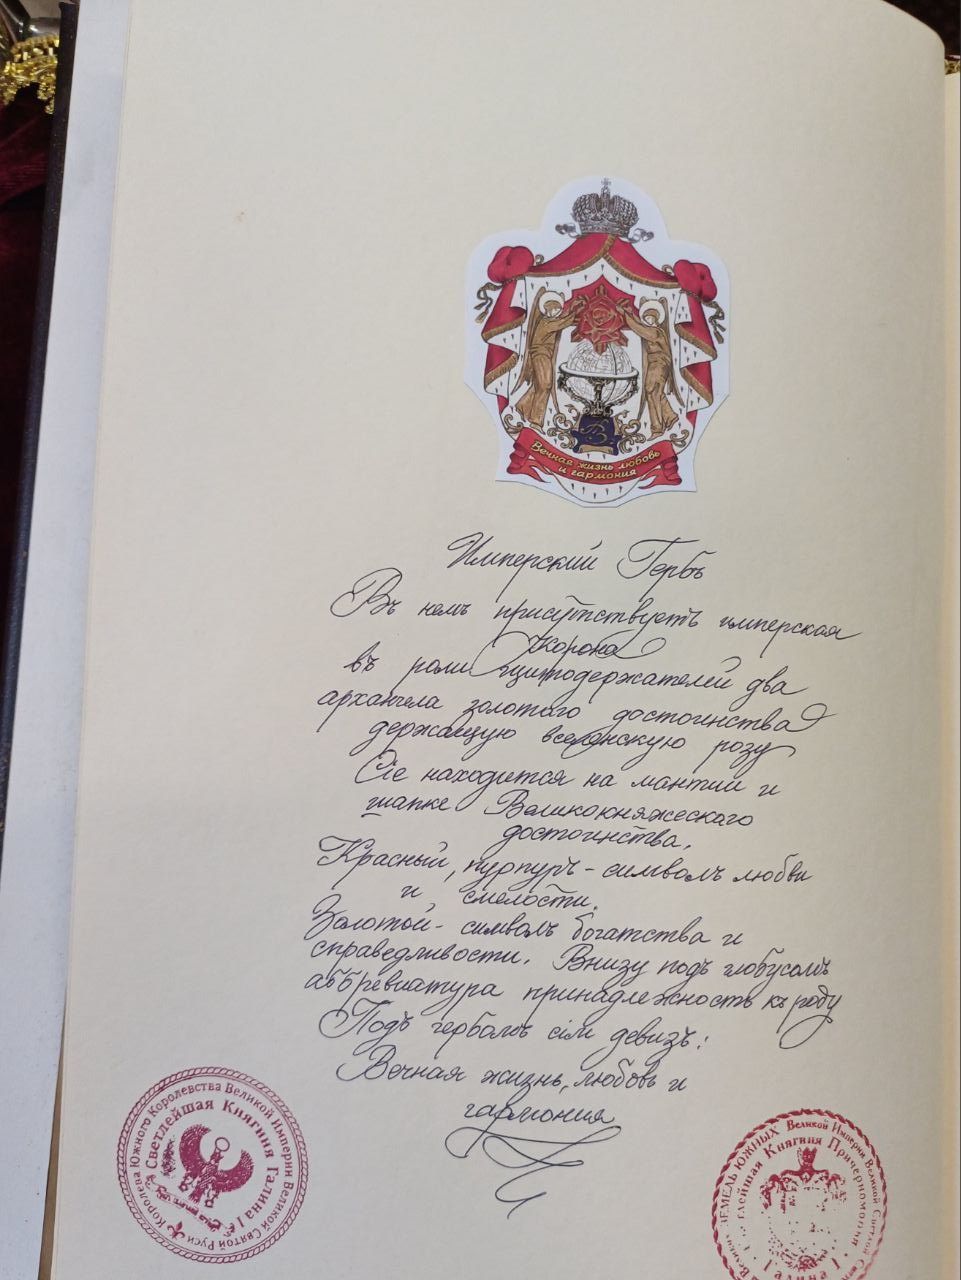 Вечная жизнь любовь
и гармония
В
Имперский Гербъ
Въ немъ присутствуетъ имперская
корона
въ роли щитодержателей два
архангела золотого достоинства
держащую вселенскую розу
Сіе находится на мантии и
шапке Великокняжескаго
достоинства.
Красный, пурпуръ - символъ любви
и смелости.
Золотой - символъ богатства и
справедливости. Внизу подъ глобусомъ
аббревиатура принадлежность къ роду
Подъ гербомъ сім девизъ:
Вечная жизнь, любовь и
гармония
Королева Южного Королевства Великой Империи Великой Святой Руси
Светлейшая Княгиня Галина I
ЗЕМЕЛЬ ЮЖНЫХ Великой Империи Великой Святой
Княгиня Причерномория